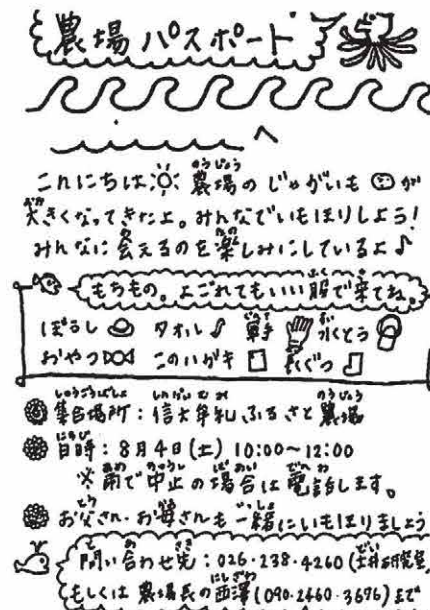 農場パスポート
へ
こんにちは 農場のじゃがいもが
大きくなってきたよ。みんなでいもほりしよう！
みんなに会えるのを楽しみにしているよ♪
もちもの。よごれてもいい服で来てね。
ぼうし タオル 軍手 水とう
おやつ このハガキ 長ぐつ
集合場所：信大牟礼ふるさと農場
日時：8月4日(土) 10:00～12:00
※雨で中止の場合は電話します。
お父さん・お母さんも一緒にいもほりましょう
問い合わせ先：026・238・4260 (土井研究室,
もしくは 農場長の西澤(090・2460・3696)まで